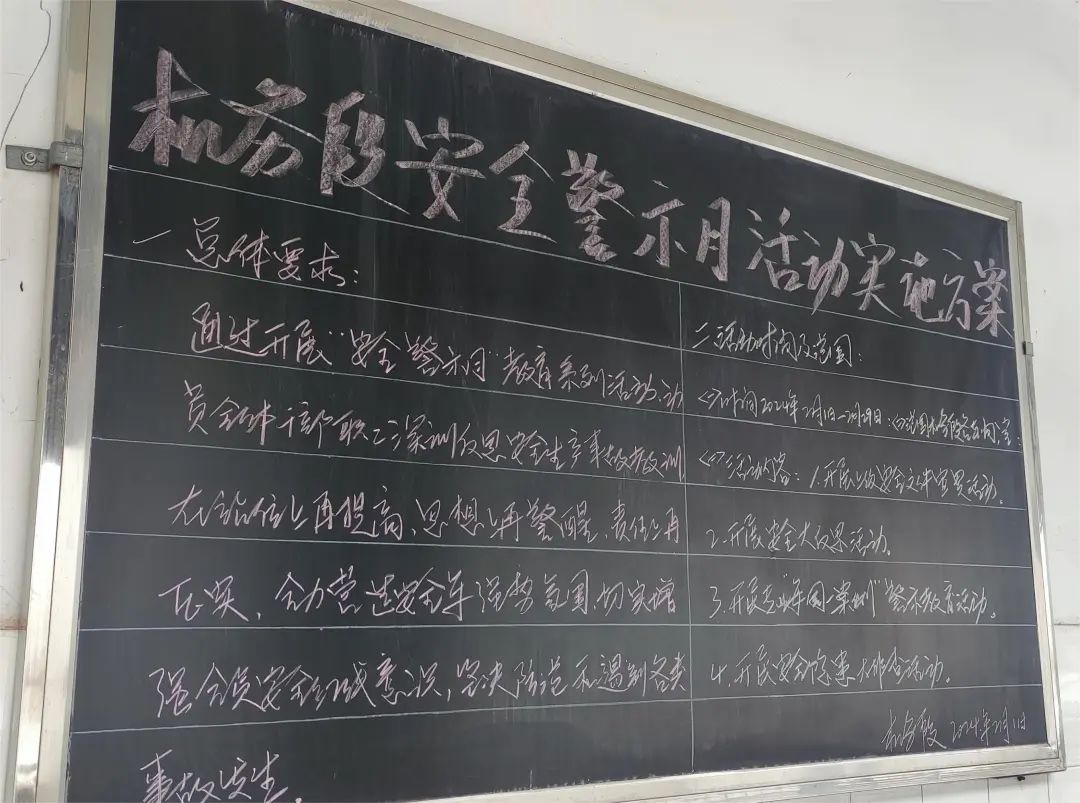 机务段安全警示月活动实施方案
一 总体要求：
通过开展"安全警示月"教育系列活动，动
员全体干部职工深刻反思安全生产事故教训
在站位上再提高、思想上再警醒、责任上再
压实，合力营造安全年强势氛围，切实增
强全员安全红线意识，坚决防范和遏制各类
事故发生。
二 活动时间及范围：
时间2024年2月1日-2月29日：范围机务段各车间、室
活动内容：1.开展上级安全文件宣贯活动。
2.开展安全大反思活动。
3.开展专业"年同一案例"警示教育活动。
4.开展安全隐患大排查活动。
机务段 2024年2月1日